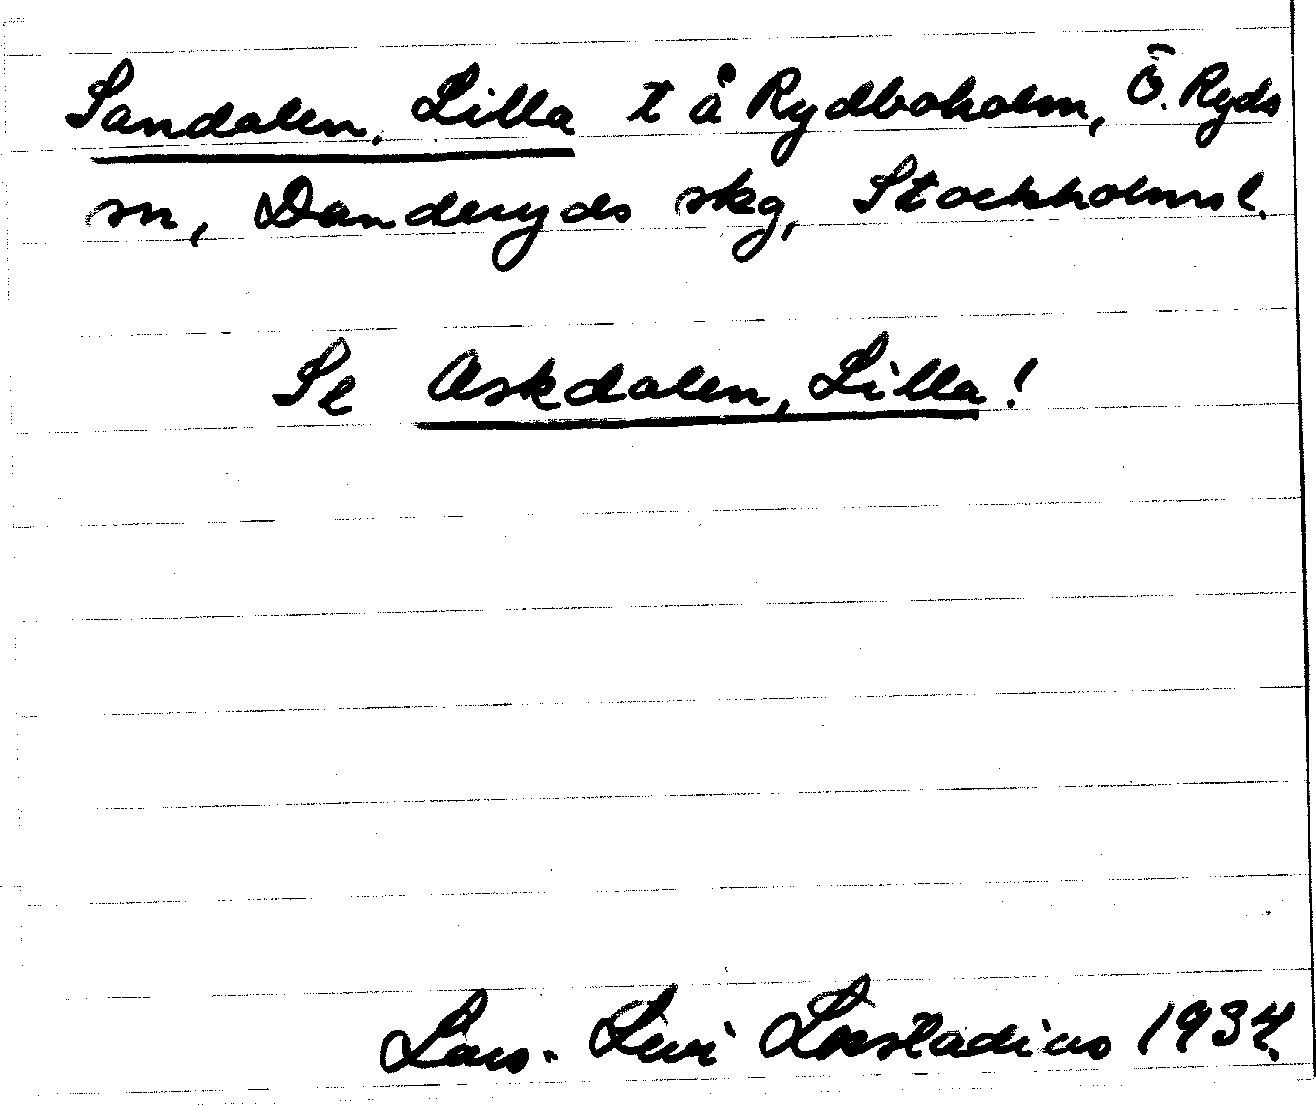 Sandalen, Lilla t å Rydboholm, Ö. Ryds
sn, Danderyds skg, Stockholms l.
Se Askdalen, Lilla!
Lars-Levi Læstadius 1934.